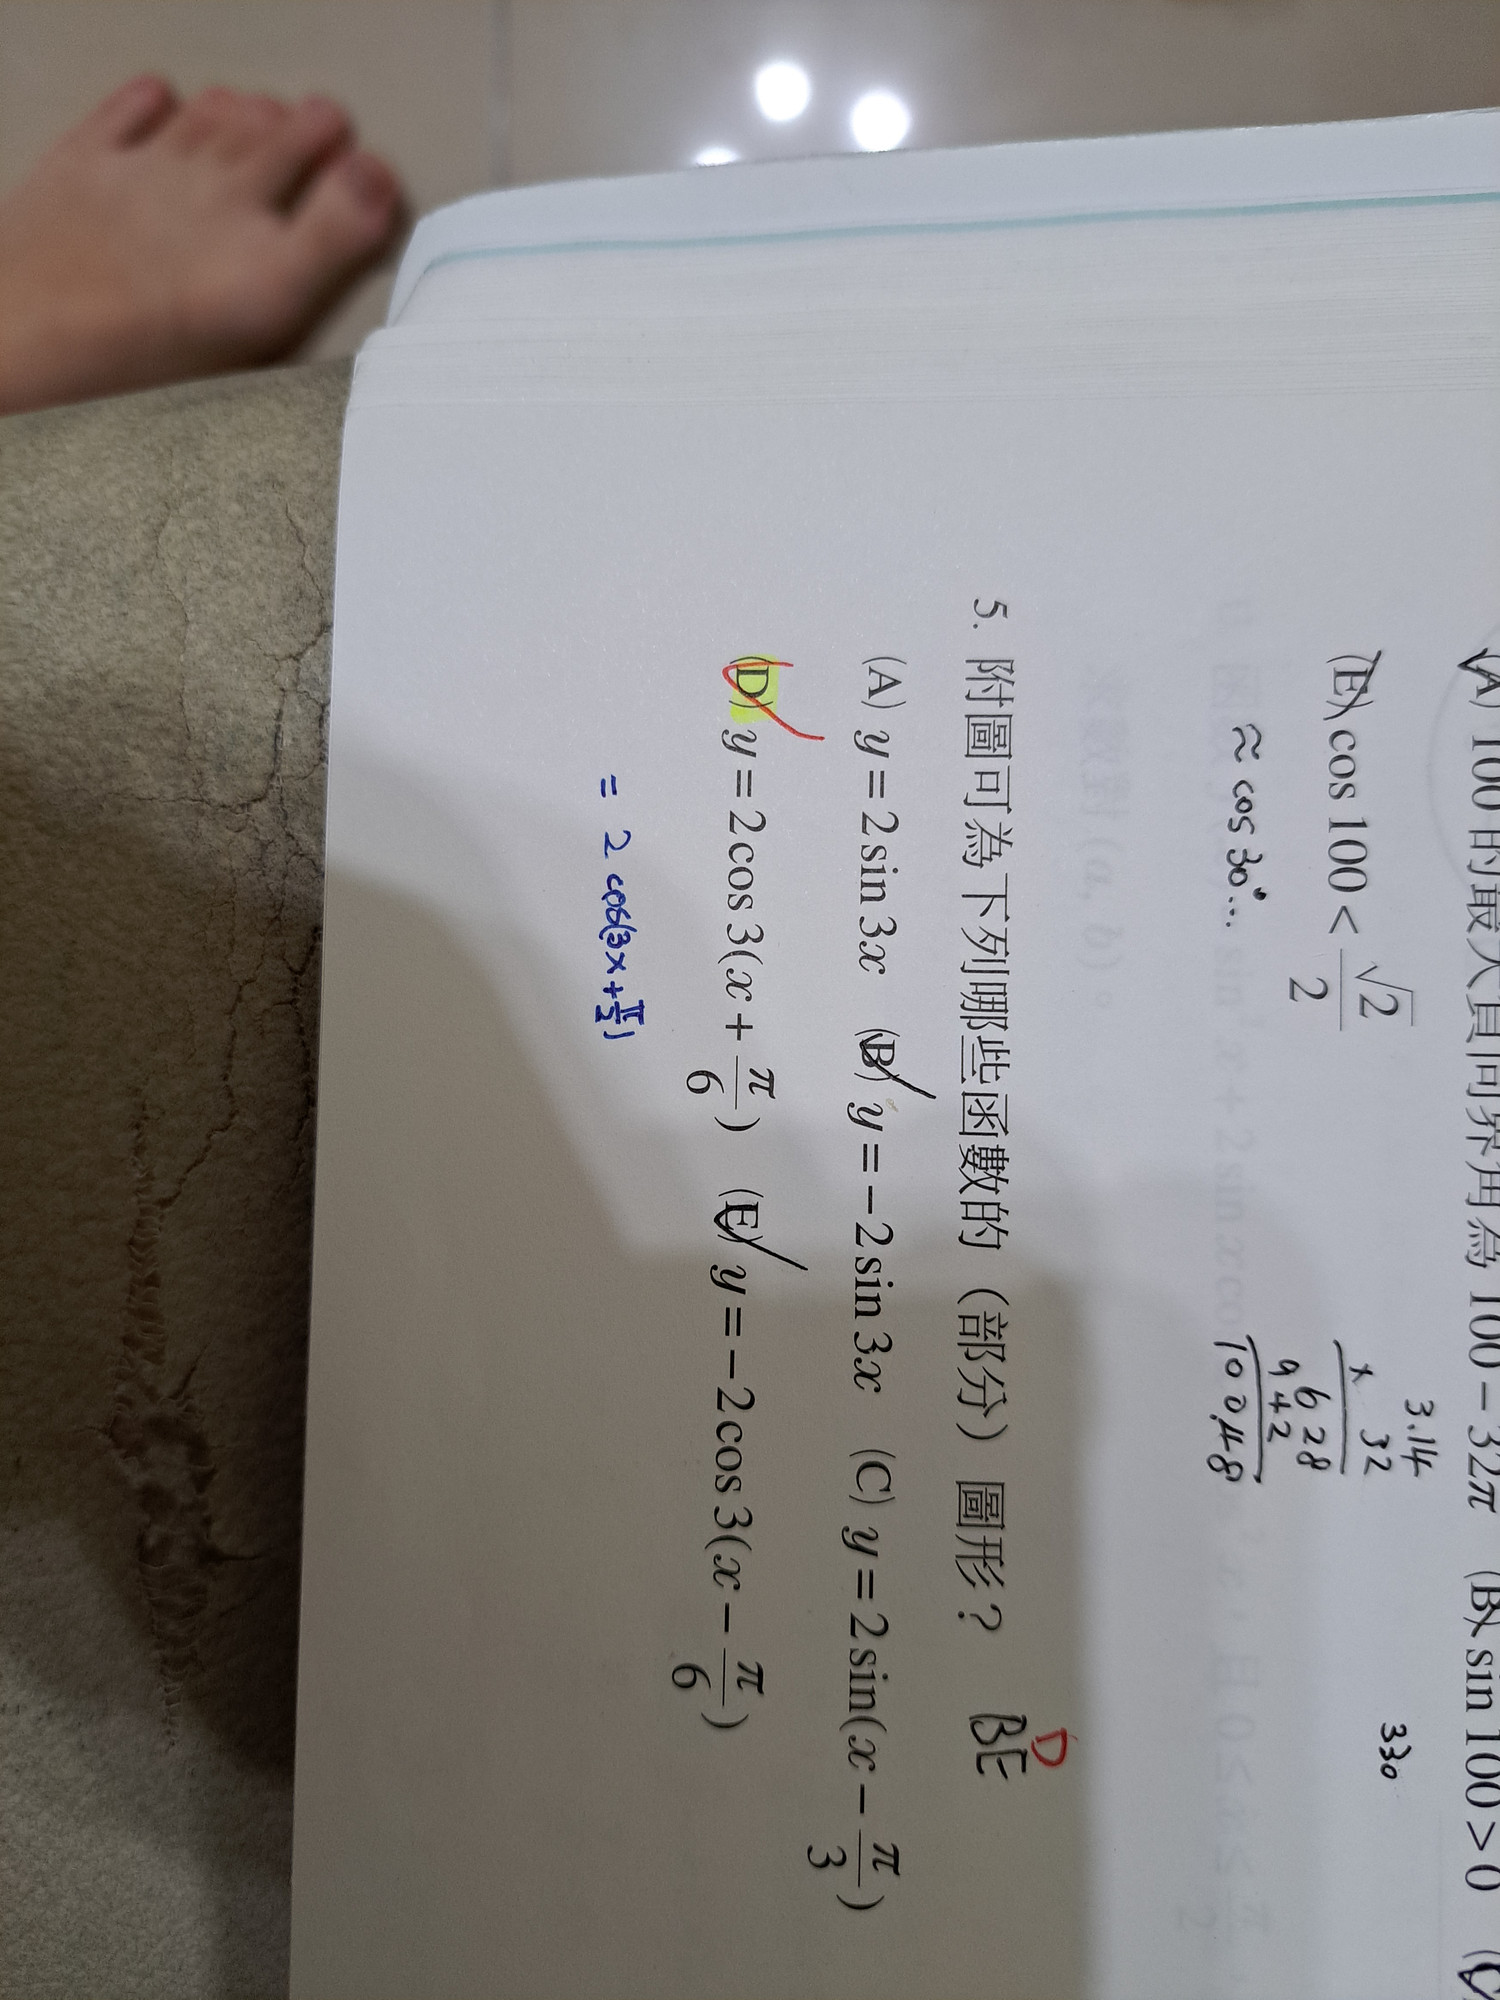 (A) 100 的最大負同界角為 100 − 32π (B) sin 100 > 0 (C)
(E) cos 100 < √2/2
≈ cos 30°...
3.14
× 32
628
942
100.48
330
5. 附圖可為下列哪些函數的（部分）圖形？ BE D
(A) y = 2 sin 3x (B) y = −2 sin 3x (C) y = 2 sin(x − π/3)
(D) y = 2 cos 3(x + π/6) (E) y = −2 cos 3(x − π/6)
= 2 cos(3x + π/2)